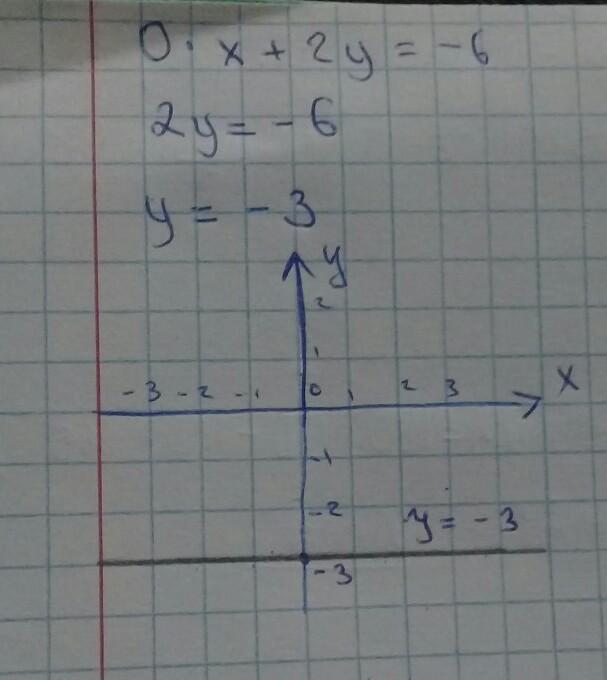 0 · x + 2y = -6
2y = -6
y = -3
y
2
1
-3 -2 -1 0 1 2 3 x
-1
-2
y = -3
-3